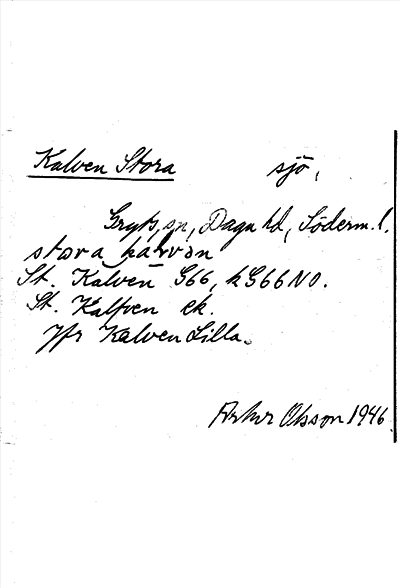 Kalven Stora sjö,
Gryts sn, Daga hd, Söderm. l.
stora kalvən
St. Kalven G66, kG66NO.
St. Kalfven ek.
Jfr Kalven Lilla.
Arthur Olsson 1946.